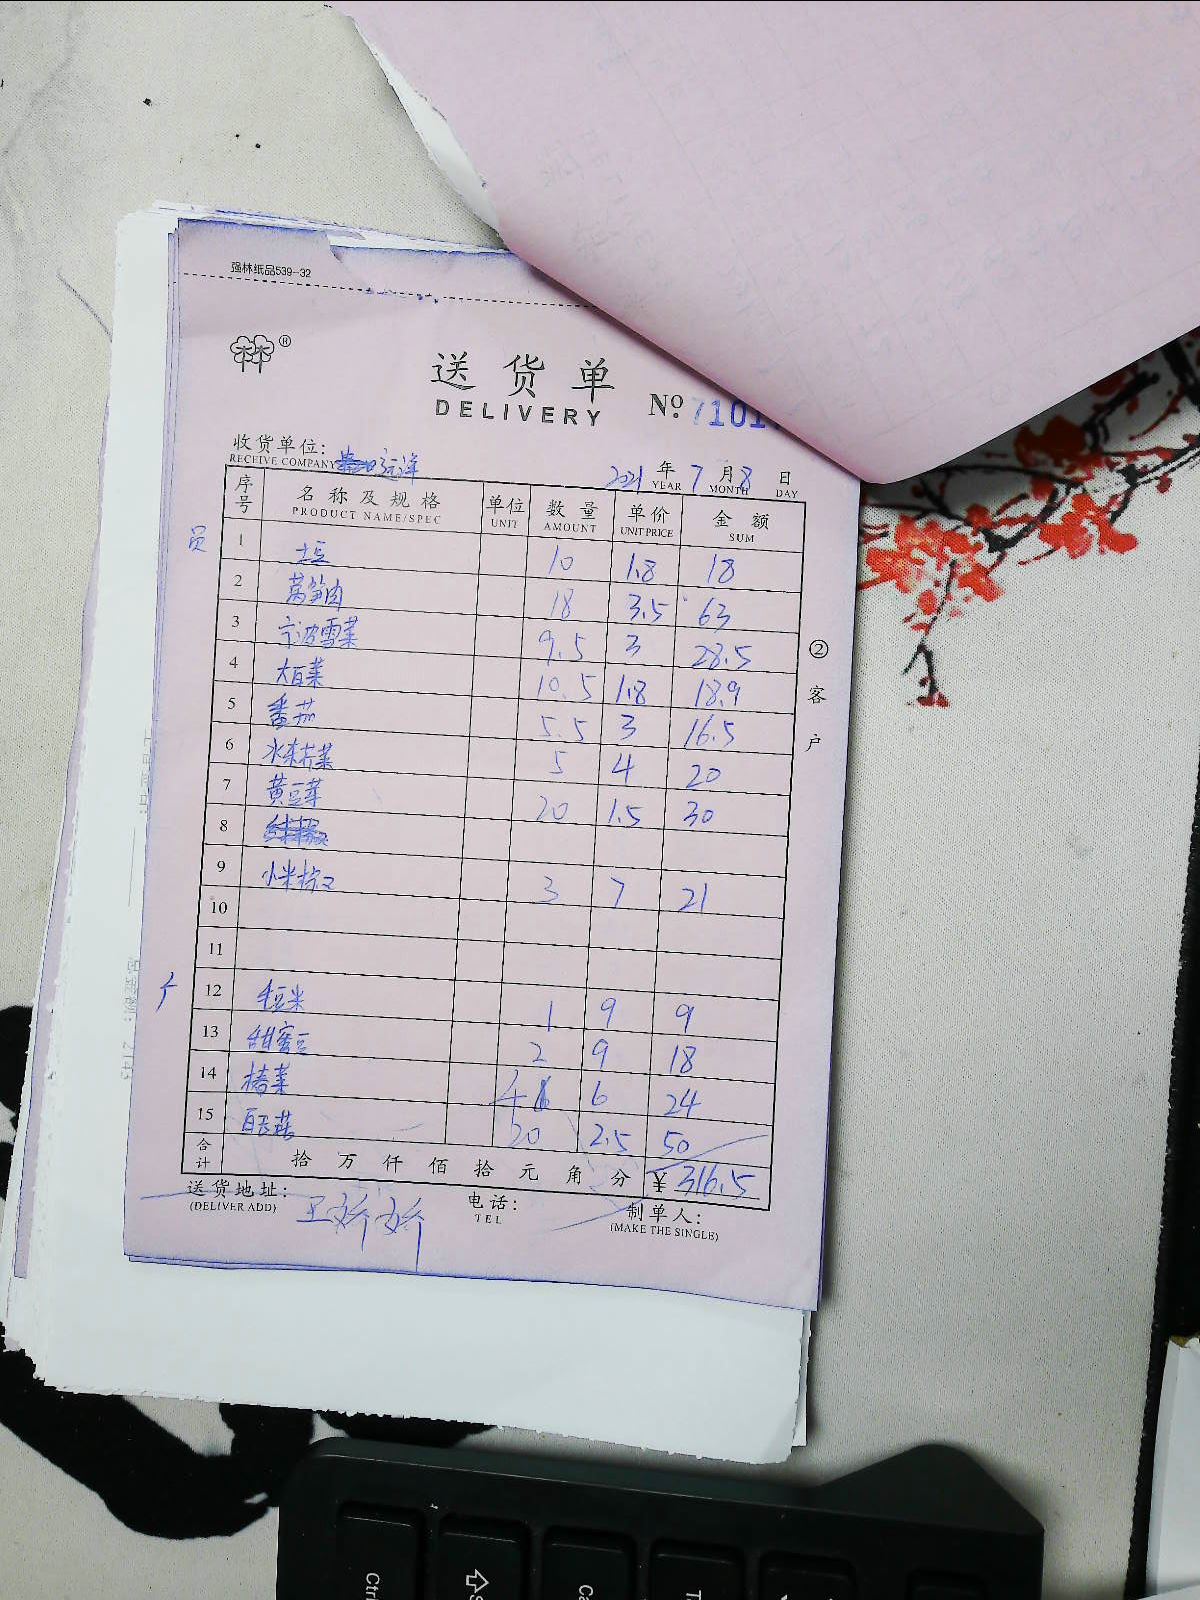 强林纸品539-32
®
送货单
DELIVERY
No. 7101
收货单位: 远洋
RECEIVE COMPANY
2021 年 7 月 8 日
YEAR MONTH DAY
序号 名称及规格 单位 数量 单价 金额
PRODUCT NAME/SPEC UNIT AMOUNT UNIT PRICE SUM
员
1 土豆 10 1.8 18
2 莴笋肉 18 3.5 63
3 宁波雪菜 9.5 3 28.5
4 大白菜 10.5 1.8 18.9
5 番茄 5.5 3 16.5
6 水 菜 5 4 20
7 黄豆芽 20 1.5 30
8
9 小米椒 3 7 21
10
11
12 米 1 9 9
13 甜蜜豆 2 9 18
14 菜 4 6 24
15 20 2.5 50
合计 拾 万 仟 佰 拾 元 角 分 ¥ 316.5
送货地址: 电话: 制单人:
(DELIVER ADD) TEL (MAKE THE SINGLE)
王娇娇
②客户
Ctrl